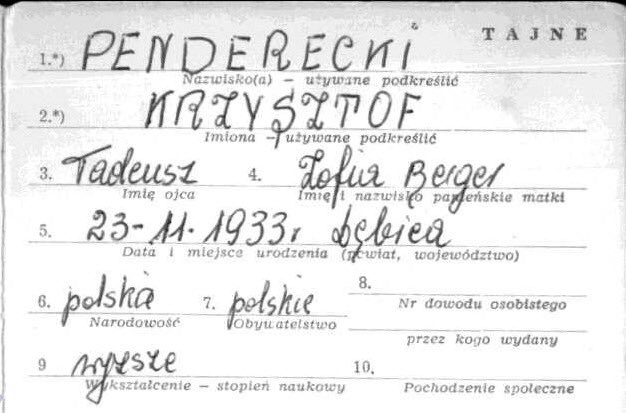 TAJNE
1.*) PENDERECKI
Nazwisko(a) – używane podkreślić
2.*) KRZYSZTOF
Imiona – używane podkreślić
3. Tadeusz 4. Zofia Berger
Imię ojca Imię i nazwisko panieńskie matki
5. 23-11-1933r Dębica
Data i miejsce urodzenia (powiat, województwo)
6. polska 7. polskie 8.
Narodowość Obywatelstwo Nr dowodu osobistego
przez kogo wydany
9 wyższe 10.
Wykształcenie – stopień naukowy Pochodzenie społeczne